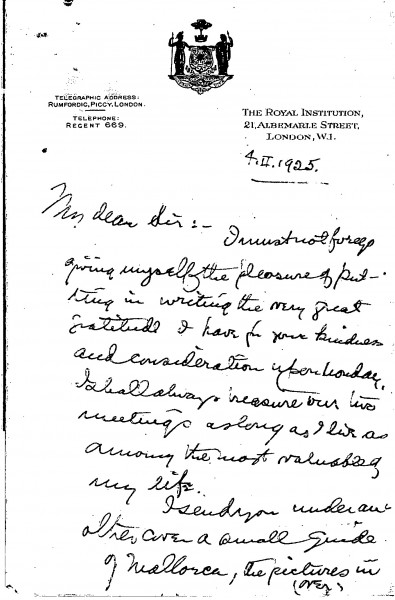 TELEGRAPHIC ADDRESS:
RUMFORDIC, PICCY, LONDON.
TELEPHONE:
REGENT 669.
THE ROYAL INSTITUTION,
21, ALBEMARLE STREET,
LONDON, W.1.
4.II.1925.
My dear Sir:-
I must not forego
giving myself the pleasure of put-
ting in writing the very great
gratitude I have for your kindness
and consideration upon Monday.
I shall always treasure our two
meetings as long as I live as
among the most valuable of
my life.
I send you under an-
other cover a small guide
of Mallorca, the pictures in
(over)